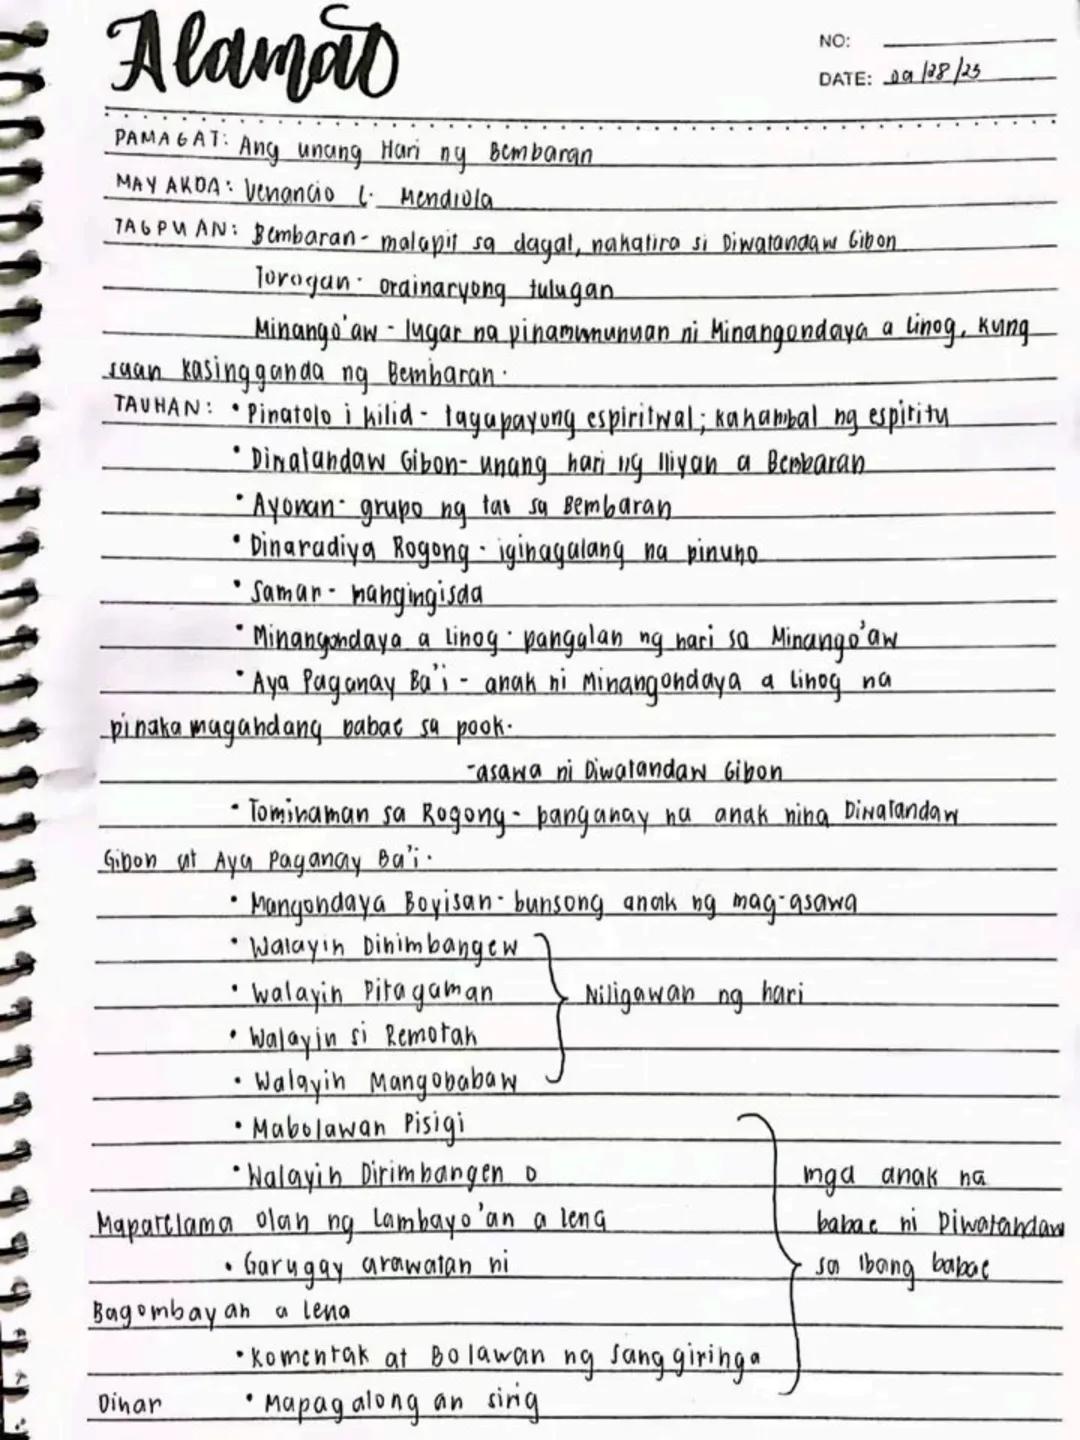 Alamat
NO:
DATE: 09/28/23
PAMAGAT: Ang unang Hari ng Bembaran
MAY AKDA: Venancio L. Mendiola
TAGPUAN: Bembaran - malapit sa dagat, nakatira si Diwatandaw Gibon
Torogan - ordinaryong tulugan
Minango'aw - lugar na pinamumunuan ni Minangondaya a Linog, kung
saan kasingganda ng Bembaran.
TAUHAN: • Pinatolo i kilid - tagapayong espiritwal; kahambal ng espiritu
• Diwatandaw Gibon - unang hari ng Iliyan a Bembaran
• Ayonan - grupo ng tao sa Bembaran
• Dinaradiya Rogong - iginagalang na pinuno
• Samar - mangingisda
• Minangondaya a Linog - pangalan ng hari sa Minango'aw
• Aya Paganay Ba'i - anak ni Minangondaya a Linog na
pinaka magandang babae sa pook.
-asawa ni Diwatandaw Gibon
• Tominaman sa Rogong - panganay na anak nina Diwatandaw
Gibon at Aya Paganay Ba'i.
• Mangondaya Boyisan - bunsong anak ng mag-asawa
• Walayin Dinimbangew
• Walayin Pitagaman Niligawan ng hari
• Walayin si Remotak
• Walayin Mangobabaw
• Mabolawan Pisigi
• Walayin Dirimbangen o mga anak na
Mapatelama olan ng Lambayo'an a lena babae ni Diwatandaw
• Garugay arawatan ni sa ibang babae
Bagombayan a lena
• Komentak at Bolawan ng Sanggiringa
Dinar • Mapagalong an sirig